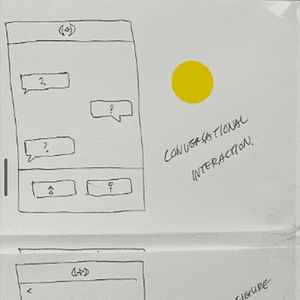 ?
?
?
CONVERSATIONAL
INTERACTION.